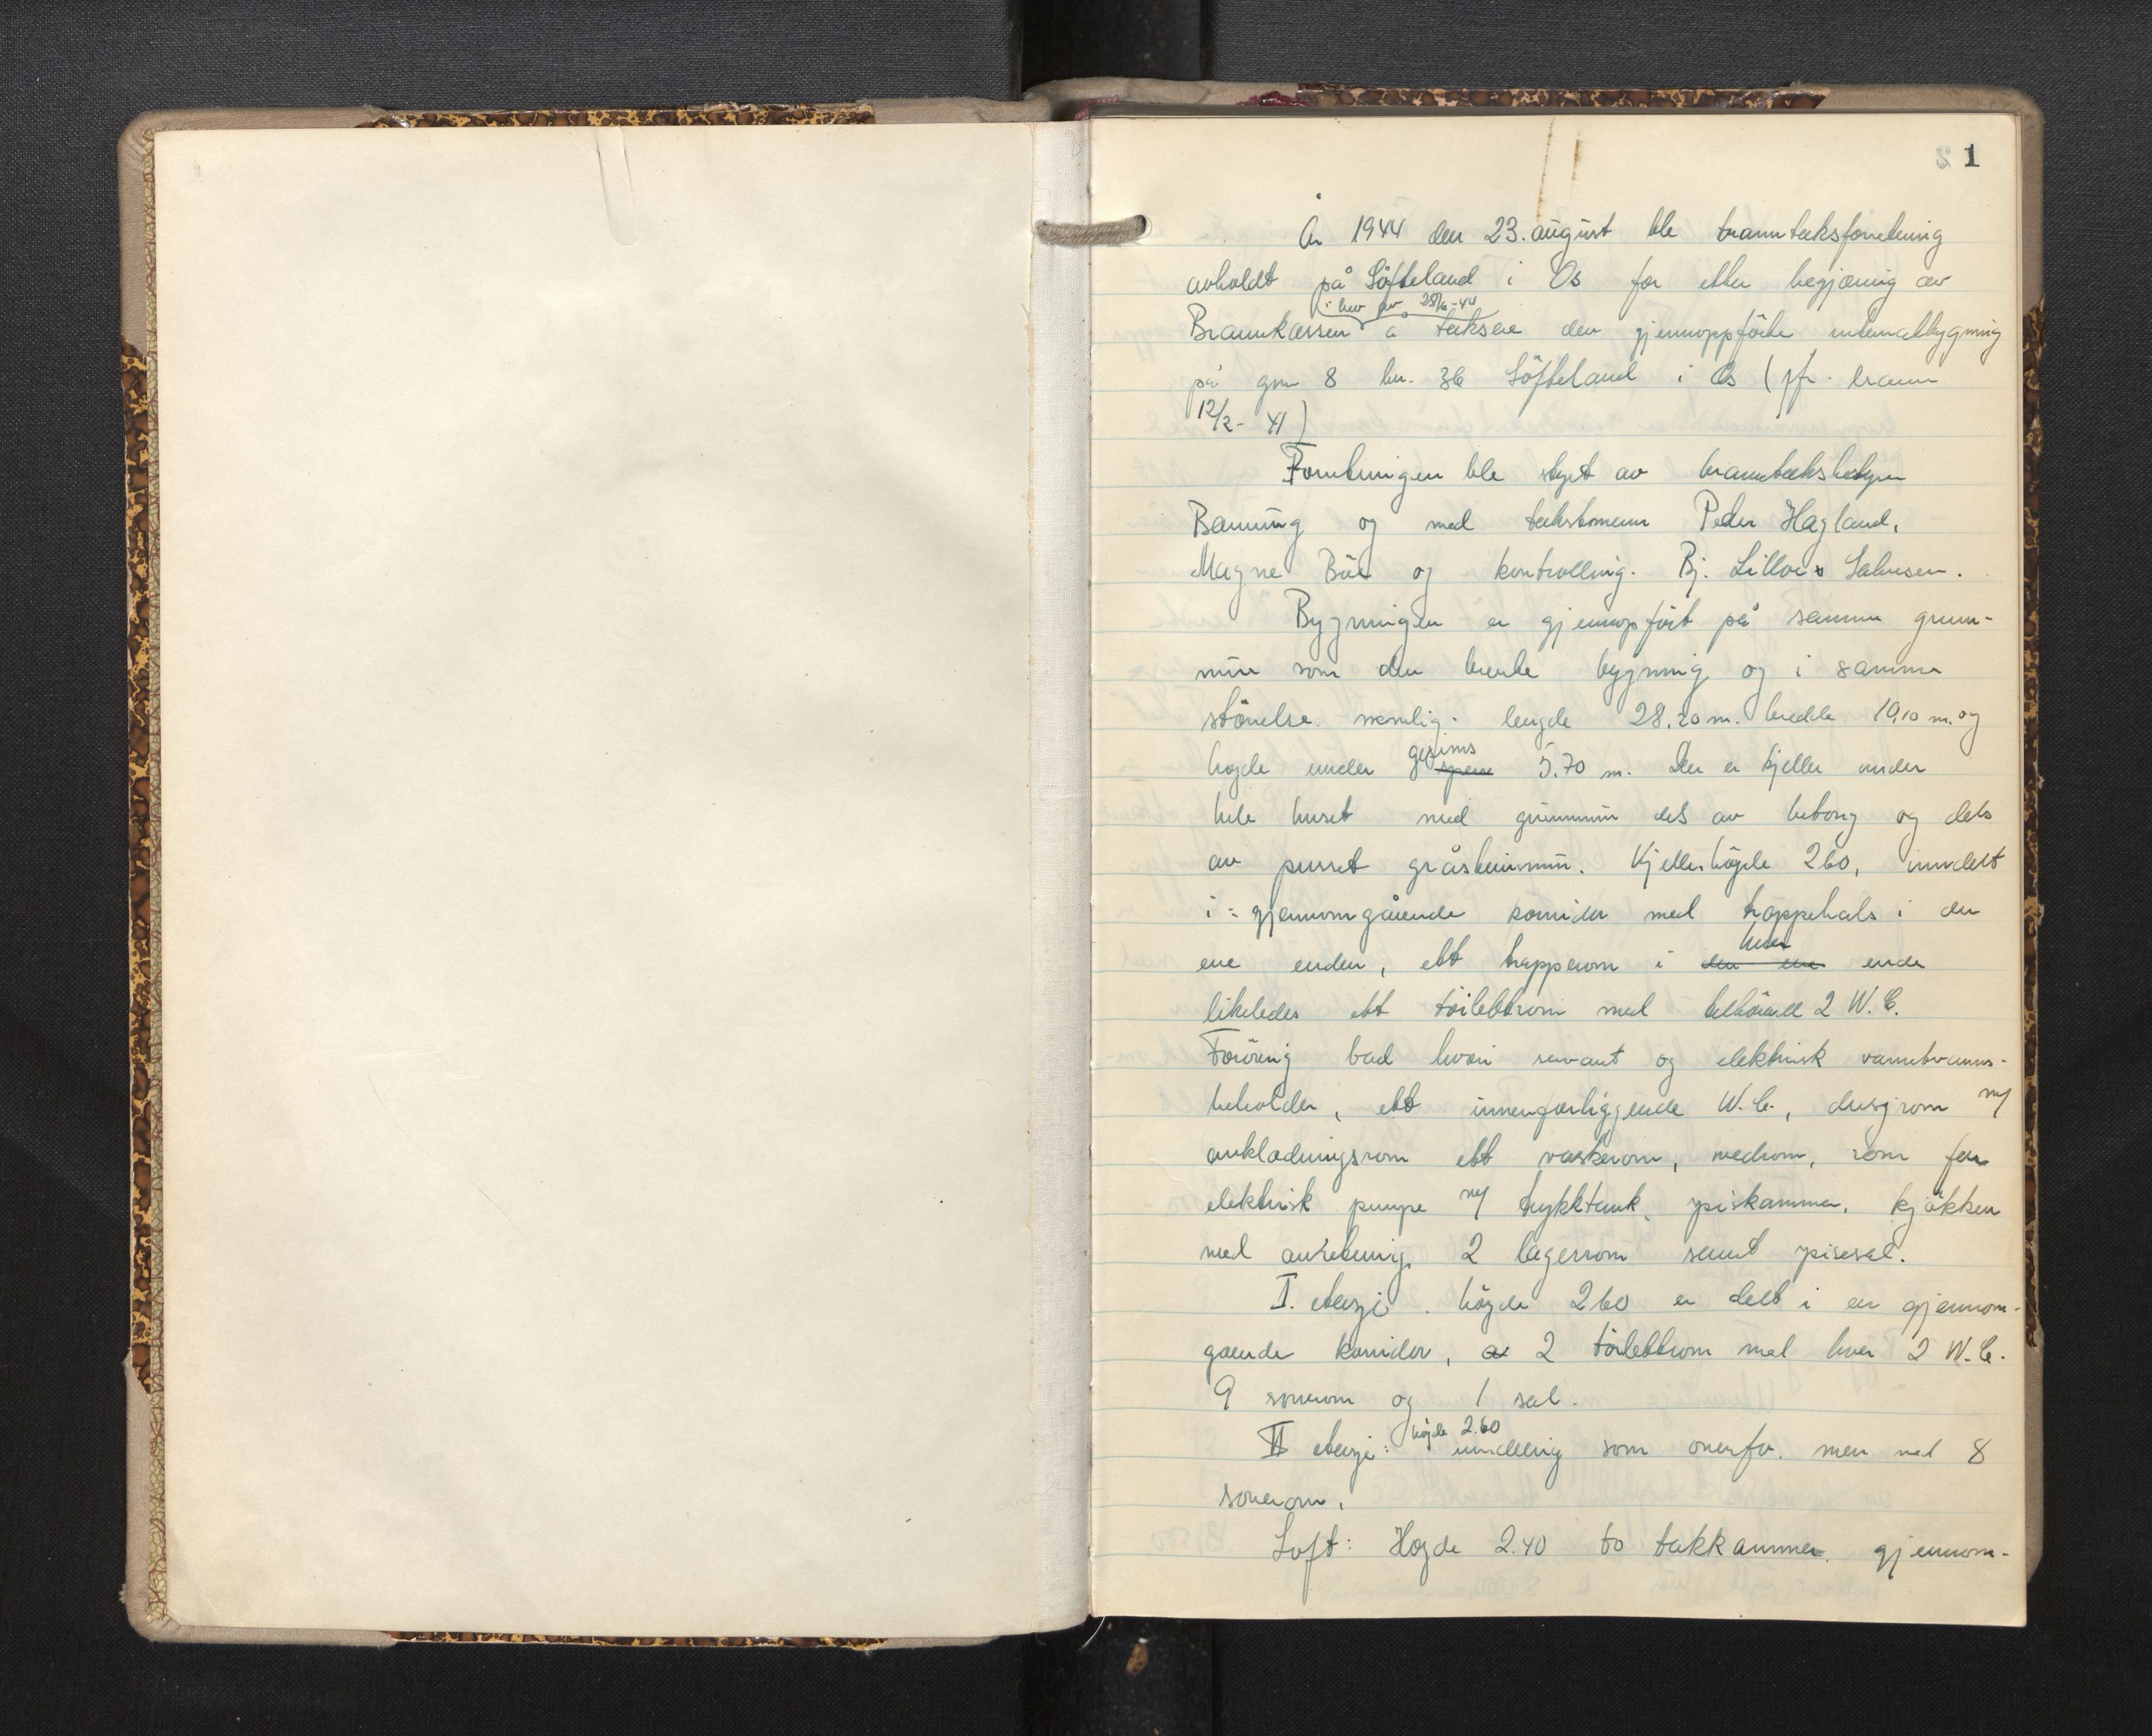 1
År 1944 den 23. august ble branntakstforretning
avholdt på Söfteland i Os for etter begjæring av
i brev av 25/6-44
Brannkassen å taksere den gjennoppförte internatbygning
på gnr 8 bn. 36 Söfteland i Os (jfr. brann
12/2- 41)
Forretningen ble styrt av branntakstbestyrer
Banning og med takstmenn Peder Hagland,
Magne Böe og kontrolling. Bj. Lilloe Salvesen.
Bygningen er gjennopfört på samme grunn-
mur som den brente bygning og i samme
störrelse nemlig: lengde 28.20 m. bredde 10,10 m. og
høgde under gesims 5.70 m. Der er kjeller under
hele huset med grunnmur dels av betong og dels
av pusset gråsteinmur. Kjellerhögde 260, inndelt
i: gjennomgående korridor med trappehals i den
ene enden, ett trapperom i hver ende
likeledes ett toilettrom med tilhörende 2 W.C.
Foröwrig bad hvori servant og elektrisk varmtvanns-
beholder, ett innenforliggende W.C., dusjrom m/
avkledningsrom ett vaskerom, vedrom, rom for
elektrisk pumpe m/ trykktank, spiskammer, kjökken
med anretning, 2 lagerrom samt spisesal.
I. etasje. högde 260 er delt i en gjennom-
gående korridor, 2 toilettrom med hver 2 W.C.
9 soverom og 1 sal.
högde 2.60
II etasje: inndeling som ovenfor. men med 8
soverom.
Loft: Høgde 2.40 to takkammer, gjennom-